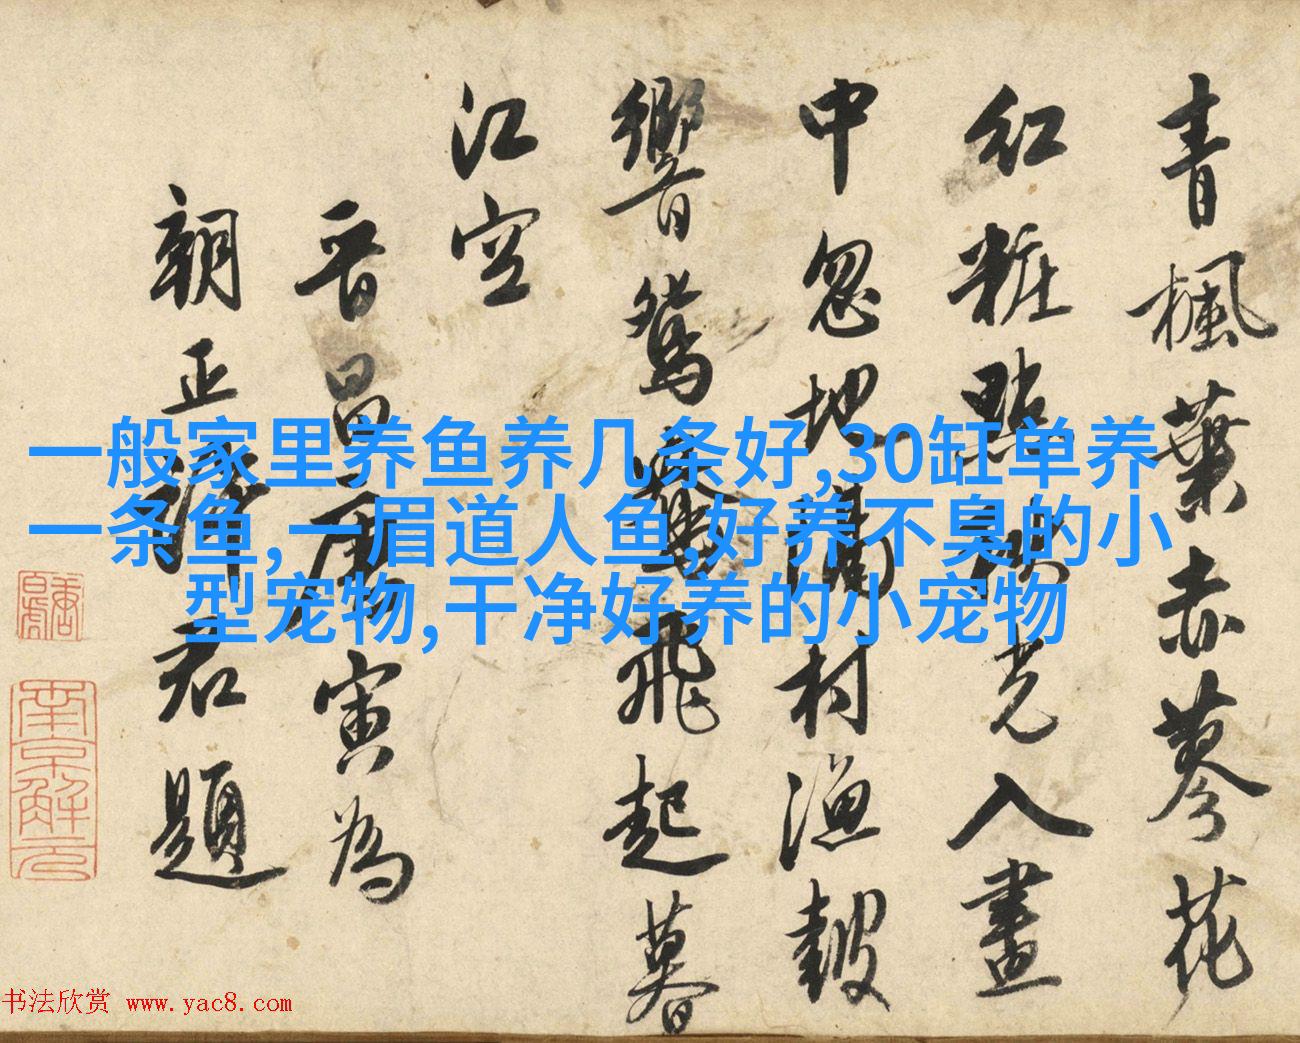 青楓葉赤蓼花
紅粧點秋光入畫
中忽地聞村漁鼓
響鴛鴦飛起暮
江空
晉昌唐寅為
朝正
君題
一般家里养鱼养几条好,30缸单养
一条鱼,一眉道人鱼,好养不臭的小
型宠物,干净好养的小宠物
南京解元
书法欣赏 www.yac8.com